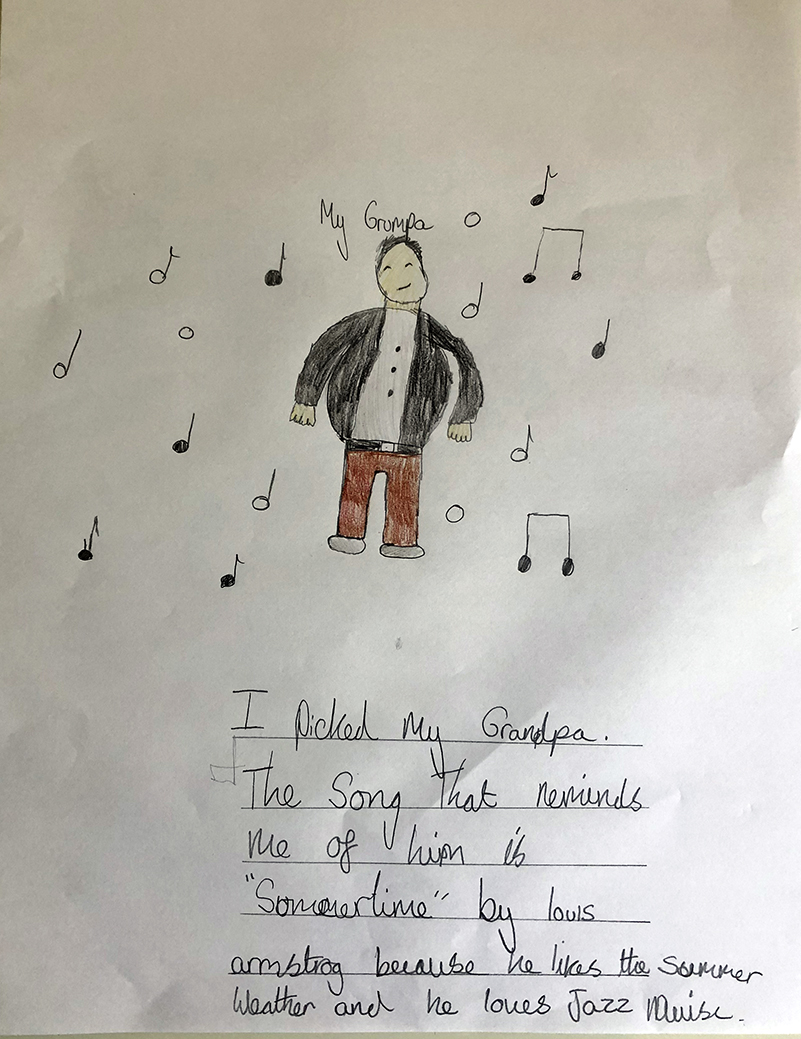 My Grompa
I picked my Grandpa.
The Song that reminds
me of him is
"Sommertime" by louis
armstrog because he likes the summer
Weather and he loves Jazz Muisc.